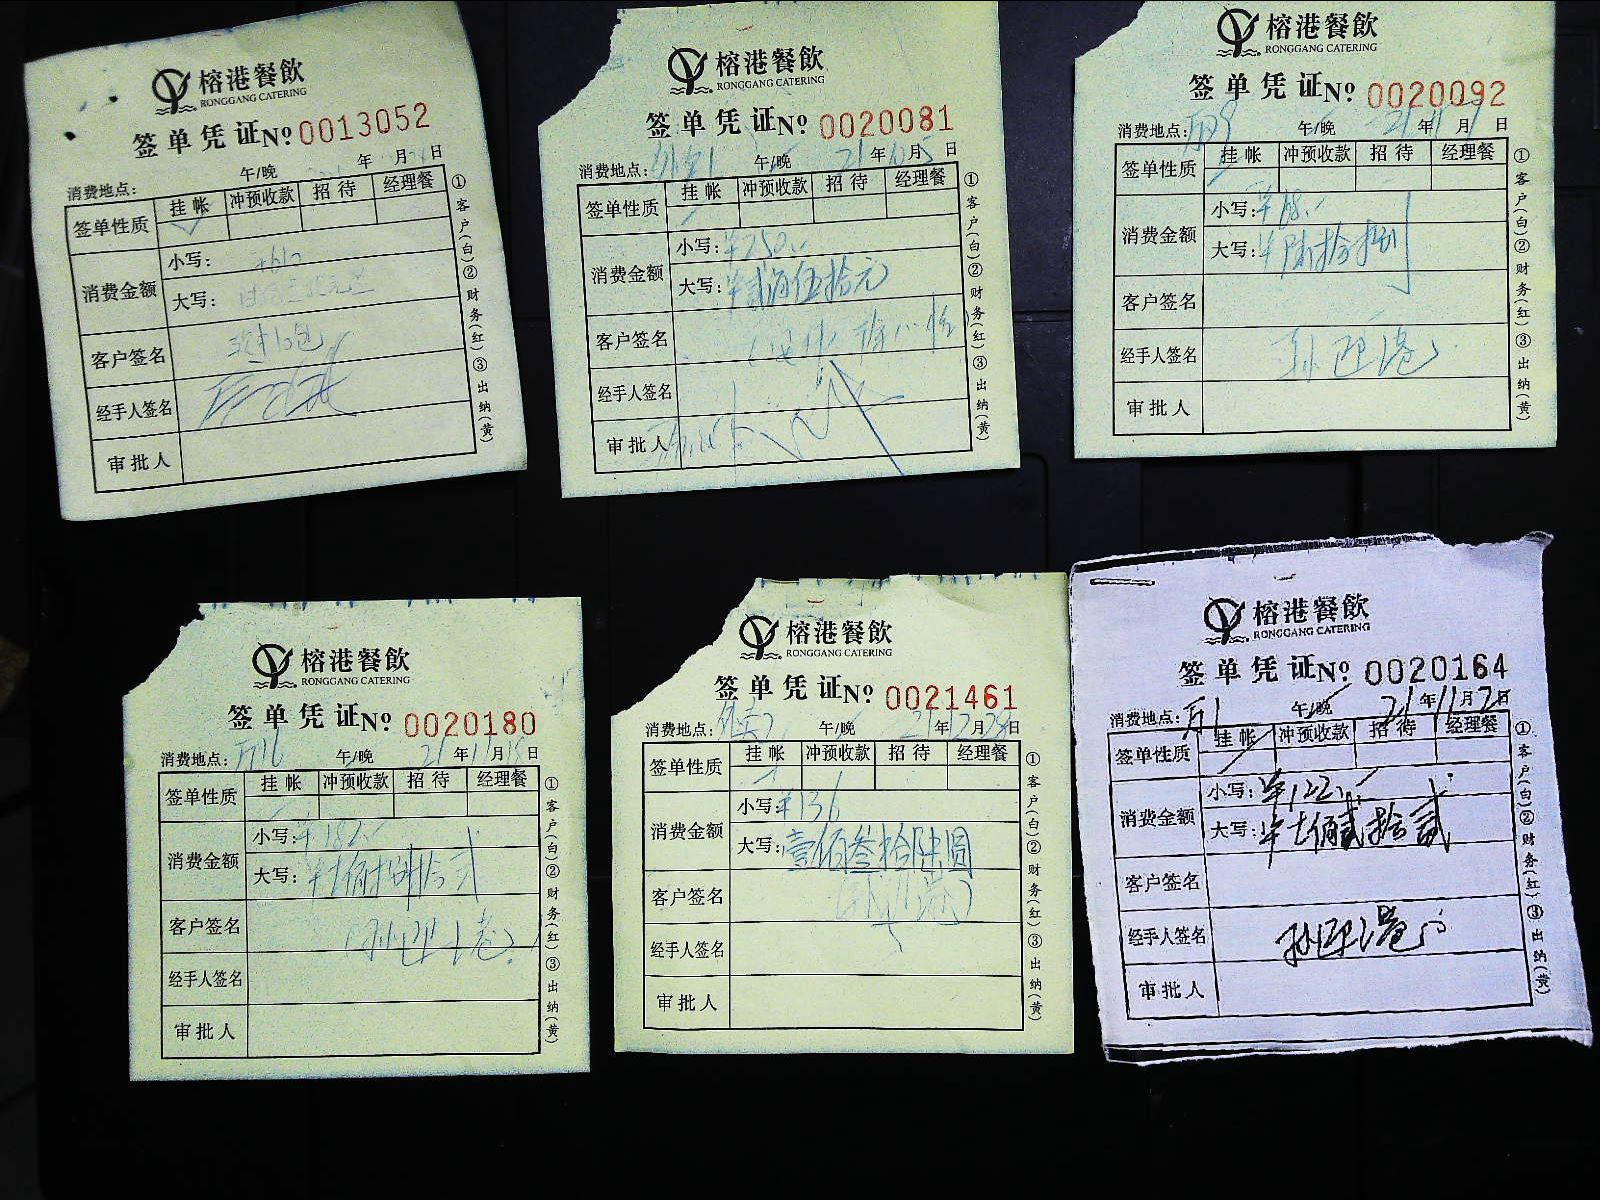 榕港餐飲
RONGGANG CATERING
签单凭证№0013052
午/晚 年 月 日
消费地点:
签单性质 挂帐 冲预收款 招待 经理餐
消费金额 小写:
大写:
客户签名
经手人签名
审批人
①客户(白)②财务(红)③出纳(黄)
榕港餐飲
RONGGANG CATERING
签单凭证№0020081
消费地点: 午/晚 21年 月 日
签单性质 挂帐 冲预收款 招待 经理餐
消费金额 小写:¥250.
大写:¥贰佰伍拾元
客户签名
经手人签名
审批人
①客户(白)②财务(红)③出纳(黄)
榕港餐飲
RONGGANG CATERING
签单凭证№0020092
消费地点: 午/晚 21年11月 日
签单性质 挂帐 冲预收款 招待 经理餐
消费金额 小写:¥68.
大写:¥陆拾捌
客户签名
经手人签名
审批人
①客户(白)②财务(红)③出纳(黄)
榕港餐飲
RONGGANG CATERING
签单凭证№0020180
消费地点: 午/晚 21年11月15日
签单性质 挂帐 冲预收款 招待 经理餐
消费金额 小写:¥182.
大写:¥壹佰捌拾贰
客户签名
经手人签名
审批人
①客户(白)②财务(红)③出纳(黄)
榕港餐飲
RONGGANG CATERING
签单凭证№0021461
消费地点: 午/晚 21年 月 日
签单性质 挂帐 冲预收款 招待 经理餐
消费金额 小写:¥136
大写:壹佰叁拾陆圆
客户签名
经手人签名
审批人
①客户(白)②财务(红)③出纳(黄)
榕港餐飲
RONGGANG CATERING
签单凭证№0020164
消费地点: 午/晚 21年11月2日
签单性质 挂帐 冲预收款 招待 经理餐
消费金额 小写:¥122.
大写:¥壹佰贰拾贰
客户签名
经手人签名
审批人
①客户(白)②财务(红)③出纳(黄)